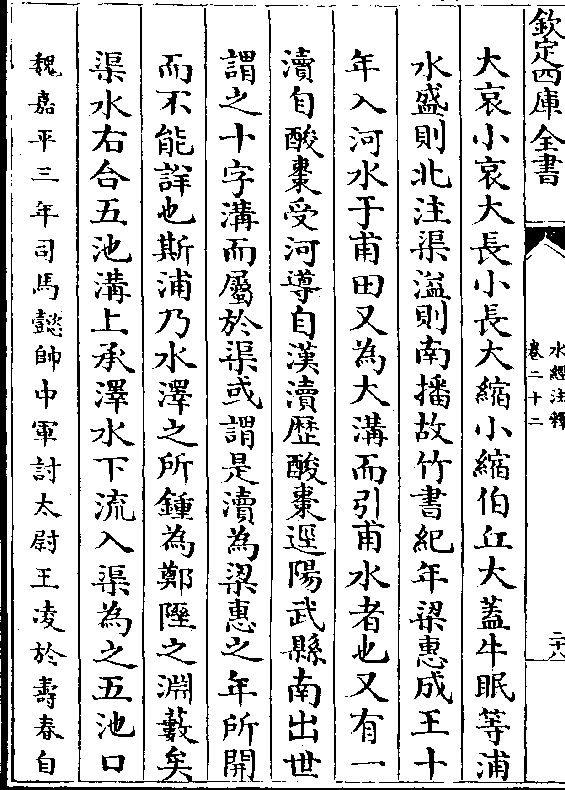 欽定四庫全書
水經注釋
卷二十二
二十八
大哀小哀大長小長大縮小縮伯丘大蓋牛眠等浦
水盛則北注渠溢則南播故竹書紀年梁惠成王十
年入河水于甫田又為大溝而引甫水者也又有一
瀆自酸棗受河導自漢瀆歴酸棗逕陽武縣南出世
謂之十字溝而屬於渠或謂是瀆為梁惠之年所開
而不能詳也斯浦乃水澤之所鍾為鄭隰之淵藪矣
渠水右合五池溝上承澤水下流入渠為之五池口
魏嘉平三年司馬懿帥中軍討太尉王凌於壽春自